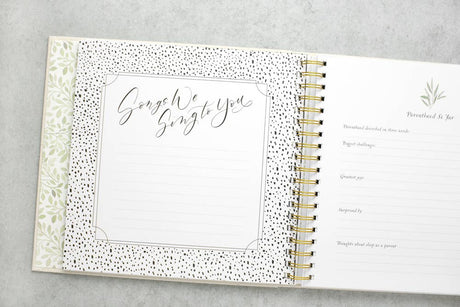 Songs We
Sung to You
Parenthood So Far
Parenthood described in three words:
Biggest challenge:
Greatest joys:
Surprised by:
Thoughts about sleep as a parent: